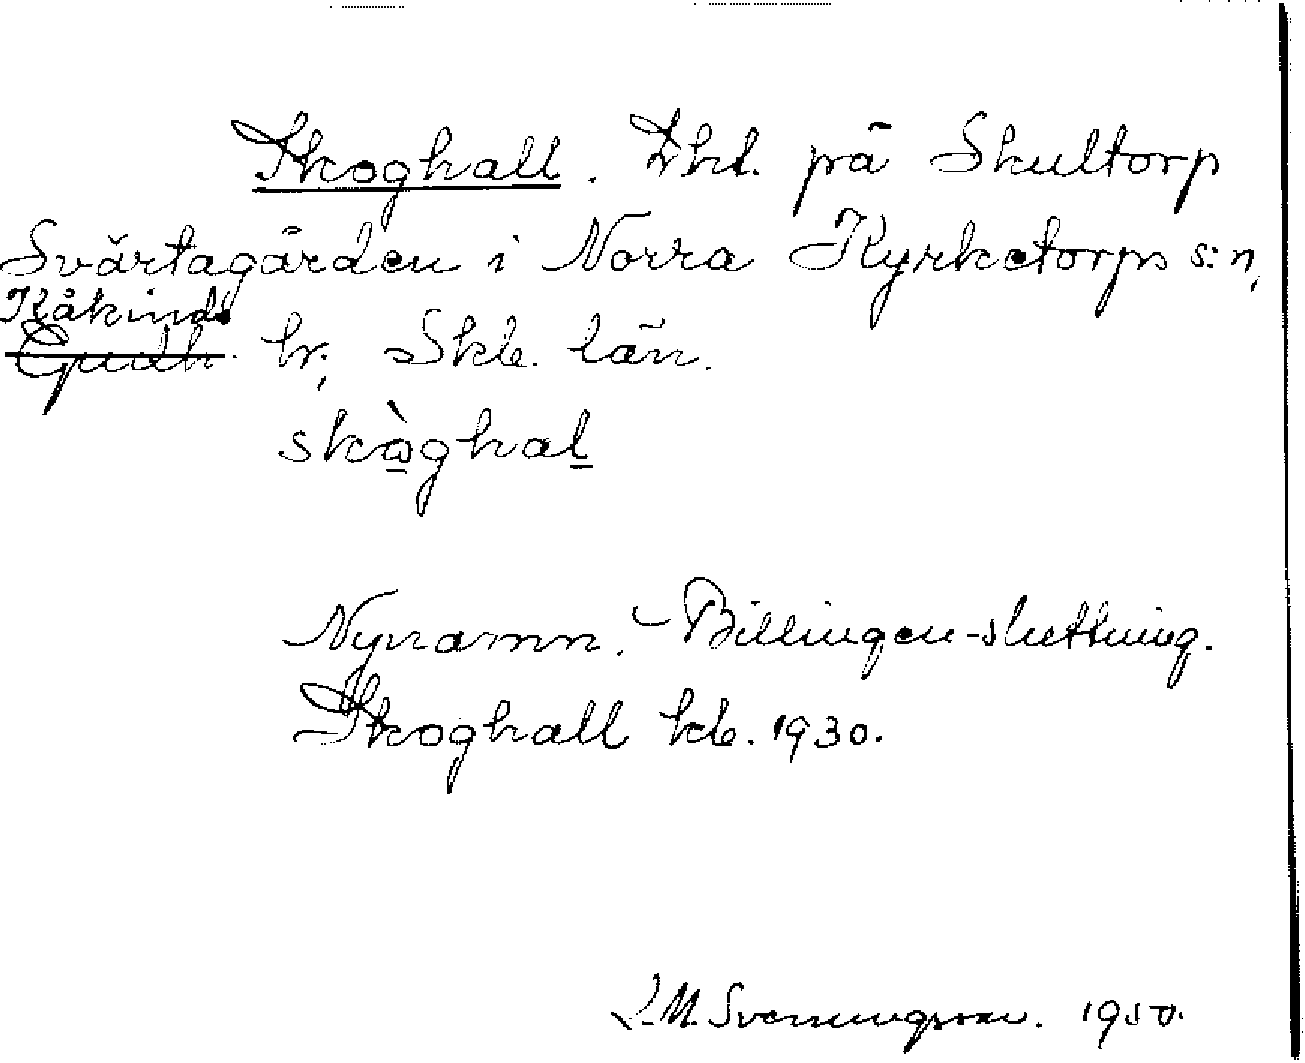 Skoghall. Lht. på Skultorp
Svärtagården i Norra Kyrketorps s:n,
Kåkinds
Gudh. hr, Skb. län.
skòghal
Nynamn. - Billingen-sluttning.
Skoghall kb. 1930.
L.M. Svenningsson. 1950.